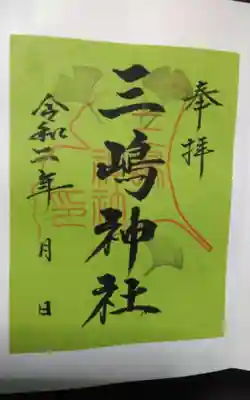 奉拝
三嶋神社
令和二年 月 日